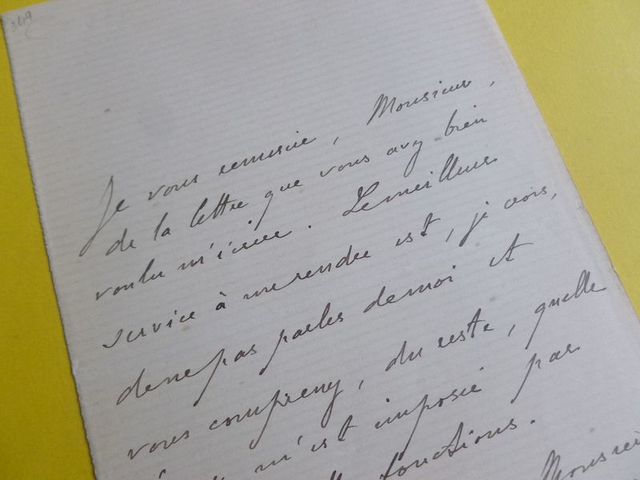 Je vous remercie, Monsieur,
de la lettre que vous avez bien
voulu m'écrire. Le meilleur
service à me rendre est, je crois,
de ne pas parler de moi et
vous comprenez, du reste, quelle
m'est imposée par
fonctions.
Monsieur